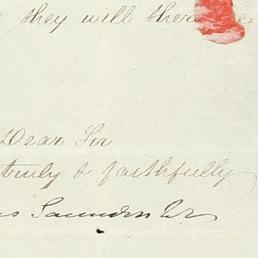 they will there
Dear Sir
truly & faithfully
Saunders Jr